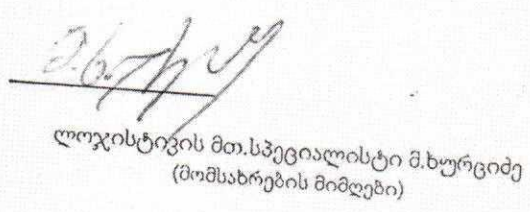 ლოჯისტივის მთ.სპეციალისტი მ.ხურციძე
(მომსახრების მიმღები)